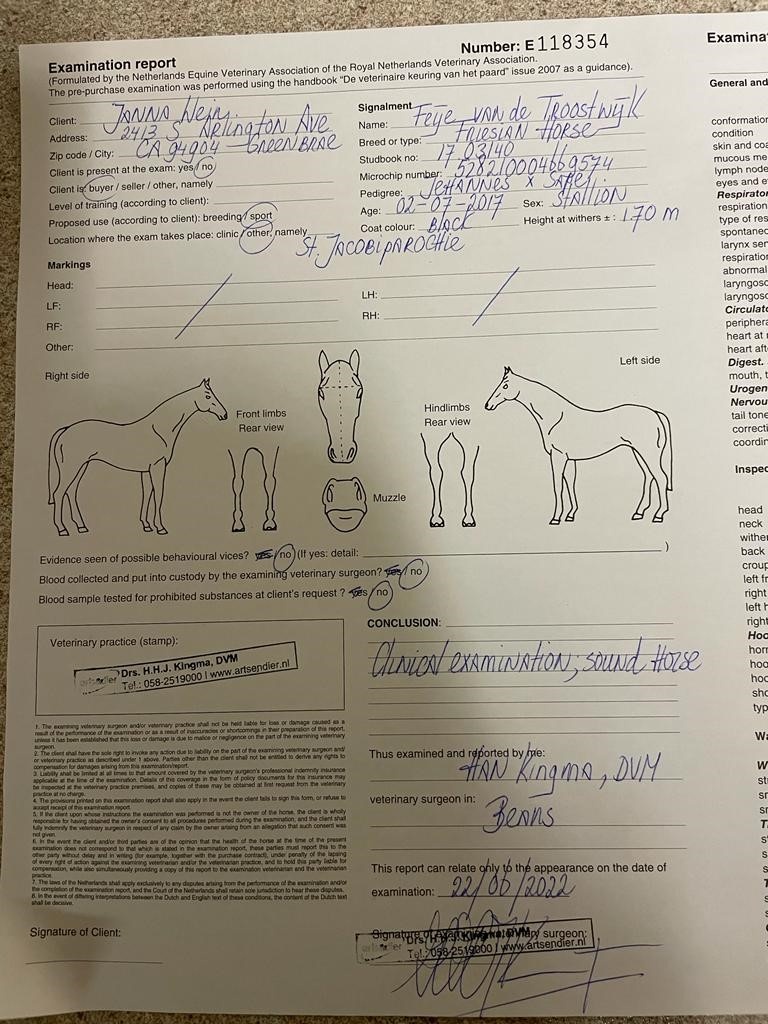 Number: E 118354
Examination report
(Formulated by the Netherlands Equine Veterinary Association of the Royal Netherlands Veterinary Association.
The pre-purchase examination was performed using the handbook "De veterinaire keuring van het paard" issue 2007 as a guidance).
Client: JANNA
Address: 2413 S ARLINGTON AVE
Zip code / City: CA 94904 - GREENBRAE
Client is present at the exam: yes / no
Client is: buyer / seller / other, namely
Level of training (according to client):
Proposed use (according to client): breeding / sport
Location where the exam takes place: clinic / other, namely ST. JACOBIPAROCHIE
Signalment
Name: Feije VAN de TROOSTWIJK
Breed or type: FRIESIAN HORSE
Studbook no: 17 03140
Microchip number: 528210004669574
Pedigree: JEHANNES x
Age: 02-07-2017 Sex: STALLION
Coat colour: BLACK Height at withers ± : 1.70 m
Markings
Head:
LF:
RF:
Other:
LH:
RH:
Right side
Front limbs
Rear view
Muzzle
Hindlimbs
Rear view
Left side
Evidence seen of possible behavioural vices? yes / no (If yes: detail: )
Blood collected and put into custody by the examining veterinary surgeon? yes / no
Blood sample tested for prohibited substances at client's request ? yes / no
Veterinary practice (stamp):
Drs. H.H.J. Kingma, DVM
Tel.: 058-2519000 I www.artsendier.nl
1. The examining veterinary surgeon and/or veterinary practice shall not be held liable for loss or damage caused as a
result of the performance of the examination or as a result of inaccuracies or shortcomings in their preparation of this report,
unless it has been established that this loss or damage is due to malice or negligence on the part of the examining veterinary
surgeon.
2. The client shall have the sole right to invoke any action due to liability on the part of the examining veterinary surgeon and/
or veterinary practice as described under 1 above. Parties other than the client shall not be entitled to derive any rights to
compensation for damages arising from this examination/report.
3. Liability shall be limited at all times to that amount covered by the veterinary surgeon's professional indemnity insurance
applicable at the time of the examination. Details of this coverage in the form of policy documents for this insurance may
be inspected at the veterinary practice premises, and copies of these may be obtained at first request from the veterinary
practice at no charge.
4. The provisions printed on this examination report shall also apply in the event the client fails to sign this form, or refuse to
accept receipt of this examination report.
5. If the client upon whose instructions the examination was performed is not the owner of the horse, the client is wholly
responsible for having obtained the owner's consent to all procedures performed during the examination, and the client shall
fully indemnify the veterinary surgeon in respect of any claim by the owner arising from an allegation that such consent was
not given.
6. In the event the client and/or third parties are of the opinion that the health of the horse at the time of the present
examination does not correspond to that which is stated in the examination report, these parties must report this to the
other party without delay and in writing (for example, together with the purchase contract), under penalty of the lapsing
of every right of action against the examining veterinarian and/or the veterinarian practice, and to hold this party liable for
compensation, while also simultaneously providing a copy of this report to the examination veterinarian and the veterinarian
practice.
7. The laws of the Netherlands shall apply exclusively to any disputes arising from the performance of the examination and/or
the completion of the examination report, and the Court of the Netherlands shall retain sole jurisdiction to hear these disputes.
8. In the event of differing interpretations between the Dutch and English text of these conditions, the content of the Dutch text
shall be decisive.
Signature of Client:
CONCLUSION:
Clinical examination; sound Horse
Thus examined and reported by me:
HAN Kingma, DVM
veterinary surgeon in:
Beans
This report can relate only to the appearance on the date of
examination: 22/06/2022
Signature of examining veterinary surgeon:
Drs. H.H.J. Kingma, DVM
Tel.: 058-2519000 I www.artsendier.nl
General and
conformation
condition
skin and coa
mucous me
lymph node
eyes and e
Respirator
respiration
type of res
spontaneo
larynx sen
respiration
abnormal
laryngosc
laryngosc
Circulato
periphera
heart at r
heart afte
Digest.
mouth, t
Urogen
Nervou
tail tone
correcti
coordin
Inspec
head
neck
wither
back
croup
left fr
right
left h
right
Hoo
horn
hoo
hoo
sho
typ